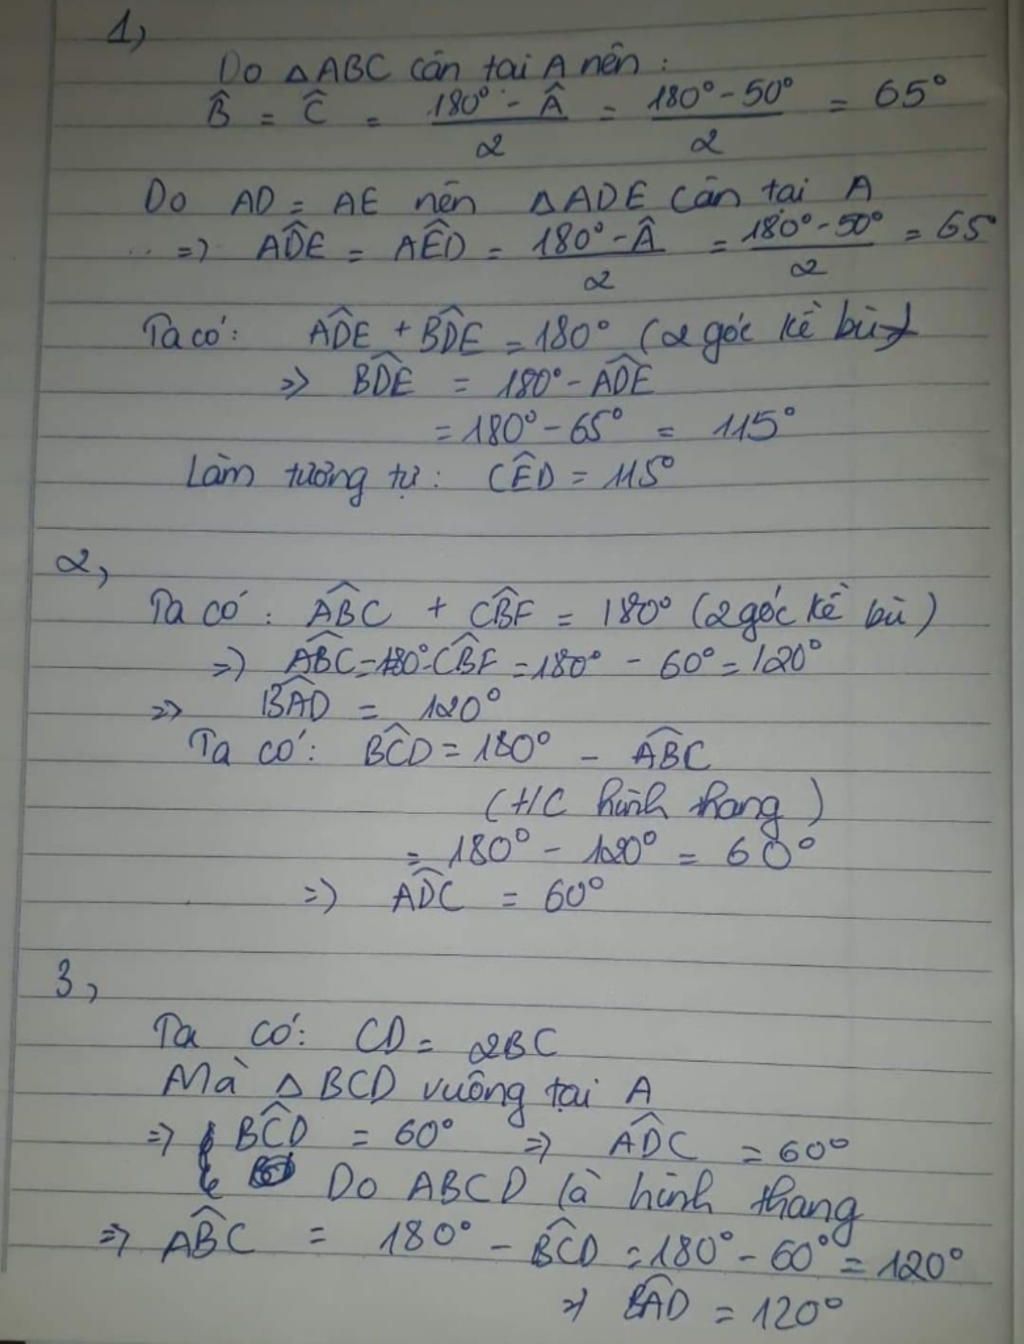 1,
Do △ABC cân tại A nên:
B̂ = Ĉ = (180° - Â)/2 = (180° - 50°)/2 = 65°
Do AD = AE nên △ADE cân tại A
.. => AD̂E = AÊD = (180° - Â)/2 = (180° - 50°)/2 = 65°
Ta có: AD̂E + BD̂E = 180° (2 góc kề bù)
=> BD̂E = 180° - AD̂E
= 180° - 65° = 115°
Làm tương tự: CÊD = 115°
2,
Ta có: AB̂C + CB̂F = 180° (2 góc kề bù)
=> AB̂C = 180° - CB̂F = 180° - 60° = 120°
=> BÂD = 120°
Ta có: BĈD = 180° - AB̂C
(t/c hình thang)
= 180° - 120° = 60°
=> AD̂C = 60°
3,
Ta có: CD = 2BC
Mà △BCD vuông tại A
=> BĈD = 60° => AD̂C = 60°
Do ABCD là hình thang
=> AB̂C = 180° - BĈD = 180° - 60° = 120°
=> BÂD = 120°